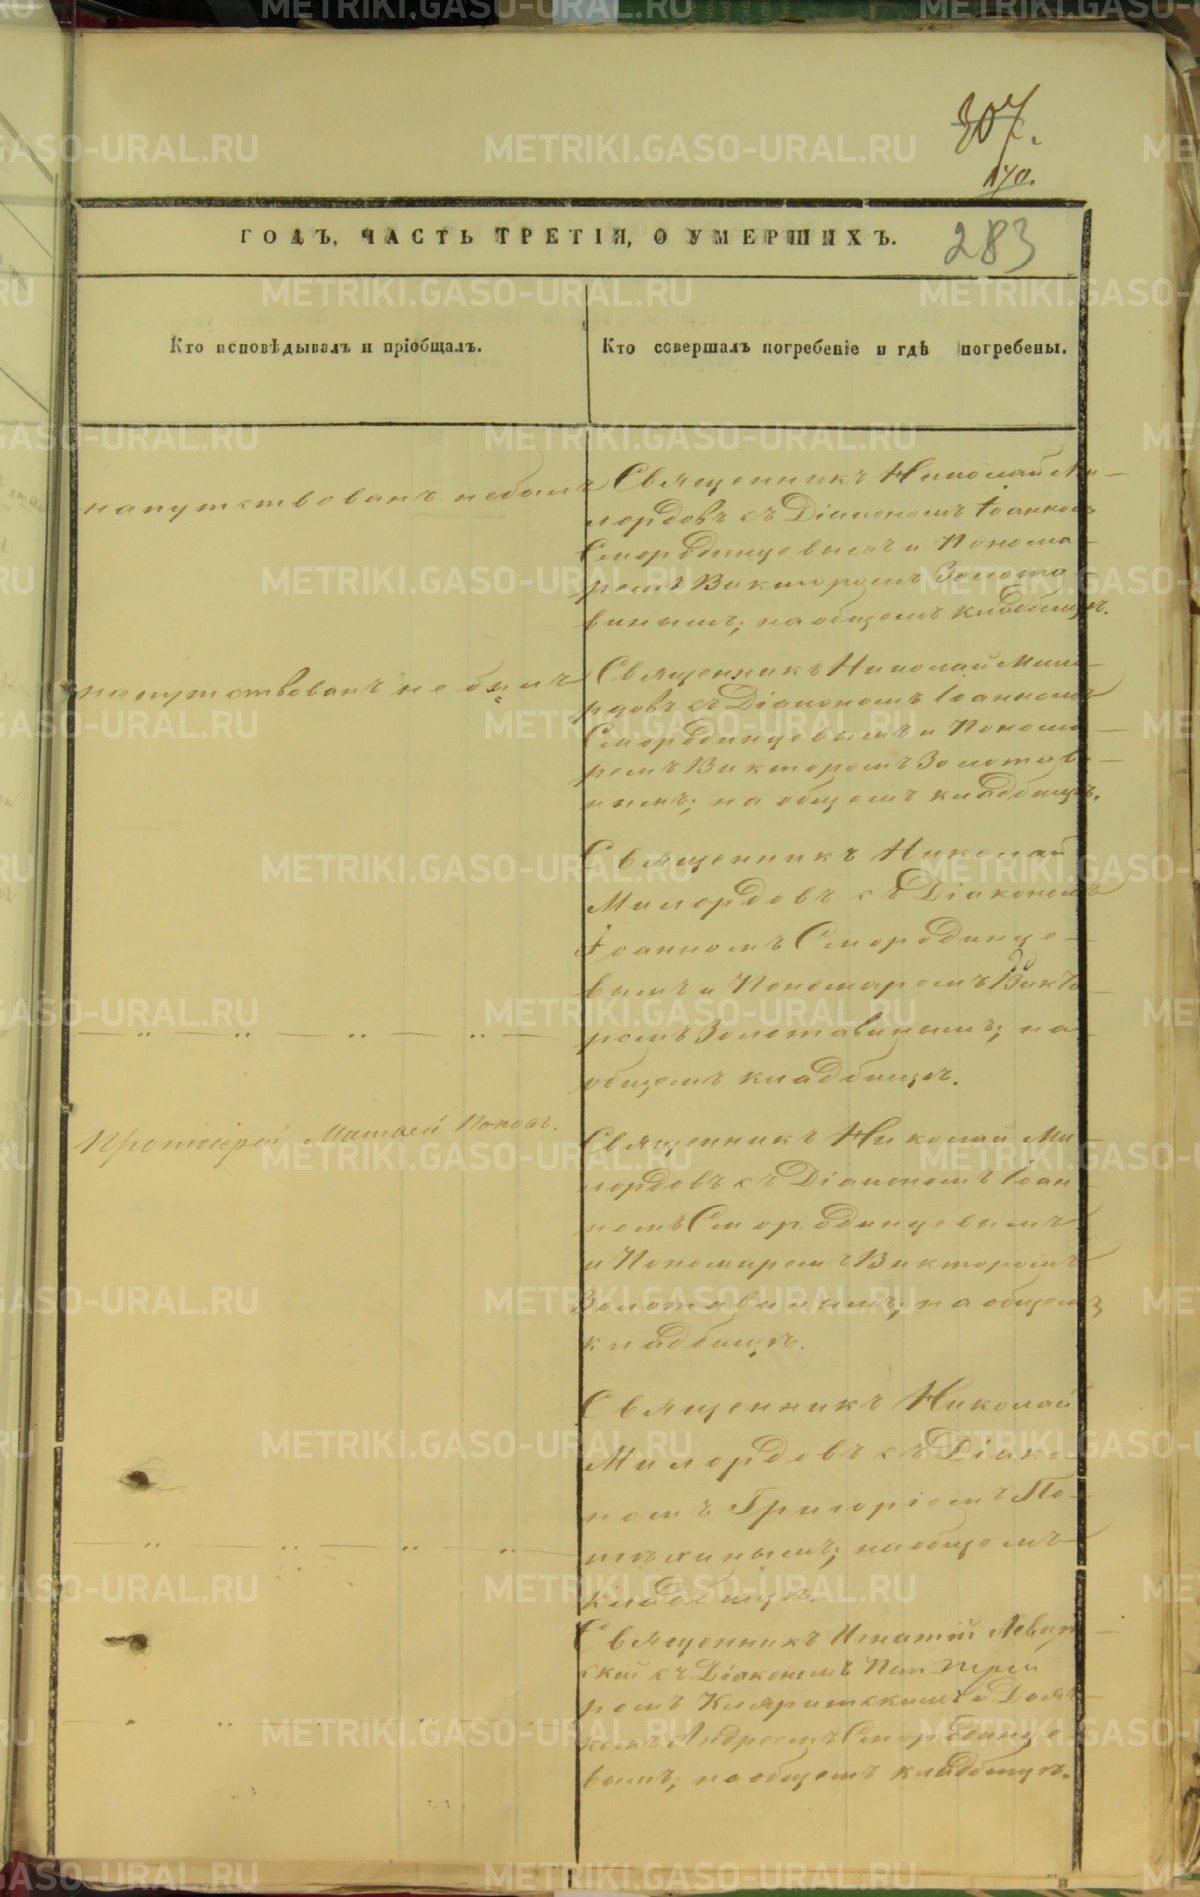 307.
170.
283
ГОДЪ, ЧАСТЬ ТРЕТІЯ, О УМЕРШИХЪ.
Кто исповѣдывалъ и пріобщалъ.
Кто совершалъ погребеніе и гдѣ погребены.
напутствованъ небылъ
Священникъ Николай Ми-
лордовъ съ Діакономъ Іоанномъ
Смородинцевымъ и Понома-
ремъ Викторомъ Золота-
винымъ; на общемъ кладбищѣ.
напутствованъ не былъ
Священникъ Николай Мило-
рдовъ съ Діакономъ Іоанномъ
Смородинцевымъ и Понома-
ремъ Викторомъ Золотави-
нымъ; на общемъ кладбищѣ.
Священникъ Николай
Милордовъ съ Діакономъ
Іоанномъ Смородинце-
вымъ и Пономаремъ Викто-
— „ — „ — „ — „ —
ромъ Золотавинымъ; на
общемъ кладбищѣ.
Протоіерей Матѳей Поповъ.
Священникъ Николай Ми-
лордовъ съ Діакономъ Іоан-
номъ Смородинцевымъ
и Пономаремъ Викторомъ
Золотавинымъ; на общемъ
кладбищѣ.
Священникъ Николай
Милордовъ съ Діако-
номъ Григоріемъ По-
— „ — „ — „ — „ —
нымъ; на общемъ
кладбищѣ.
Священникъ Игнатій
съ Діакономъ
ромъ и Дьяч-
комъ Андреемъ Смородинце-
вымъ; на общемъ кладбищѣ.
METRIKI.GASO-URAL.RU